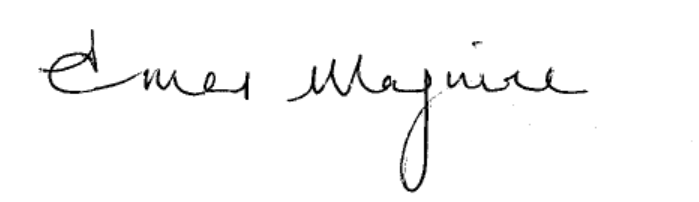 Emer Maguire